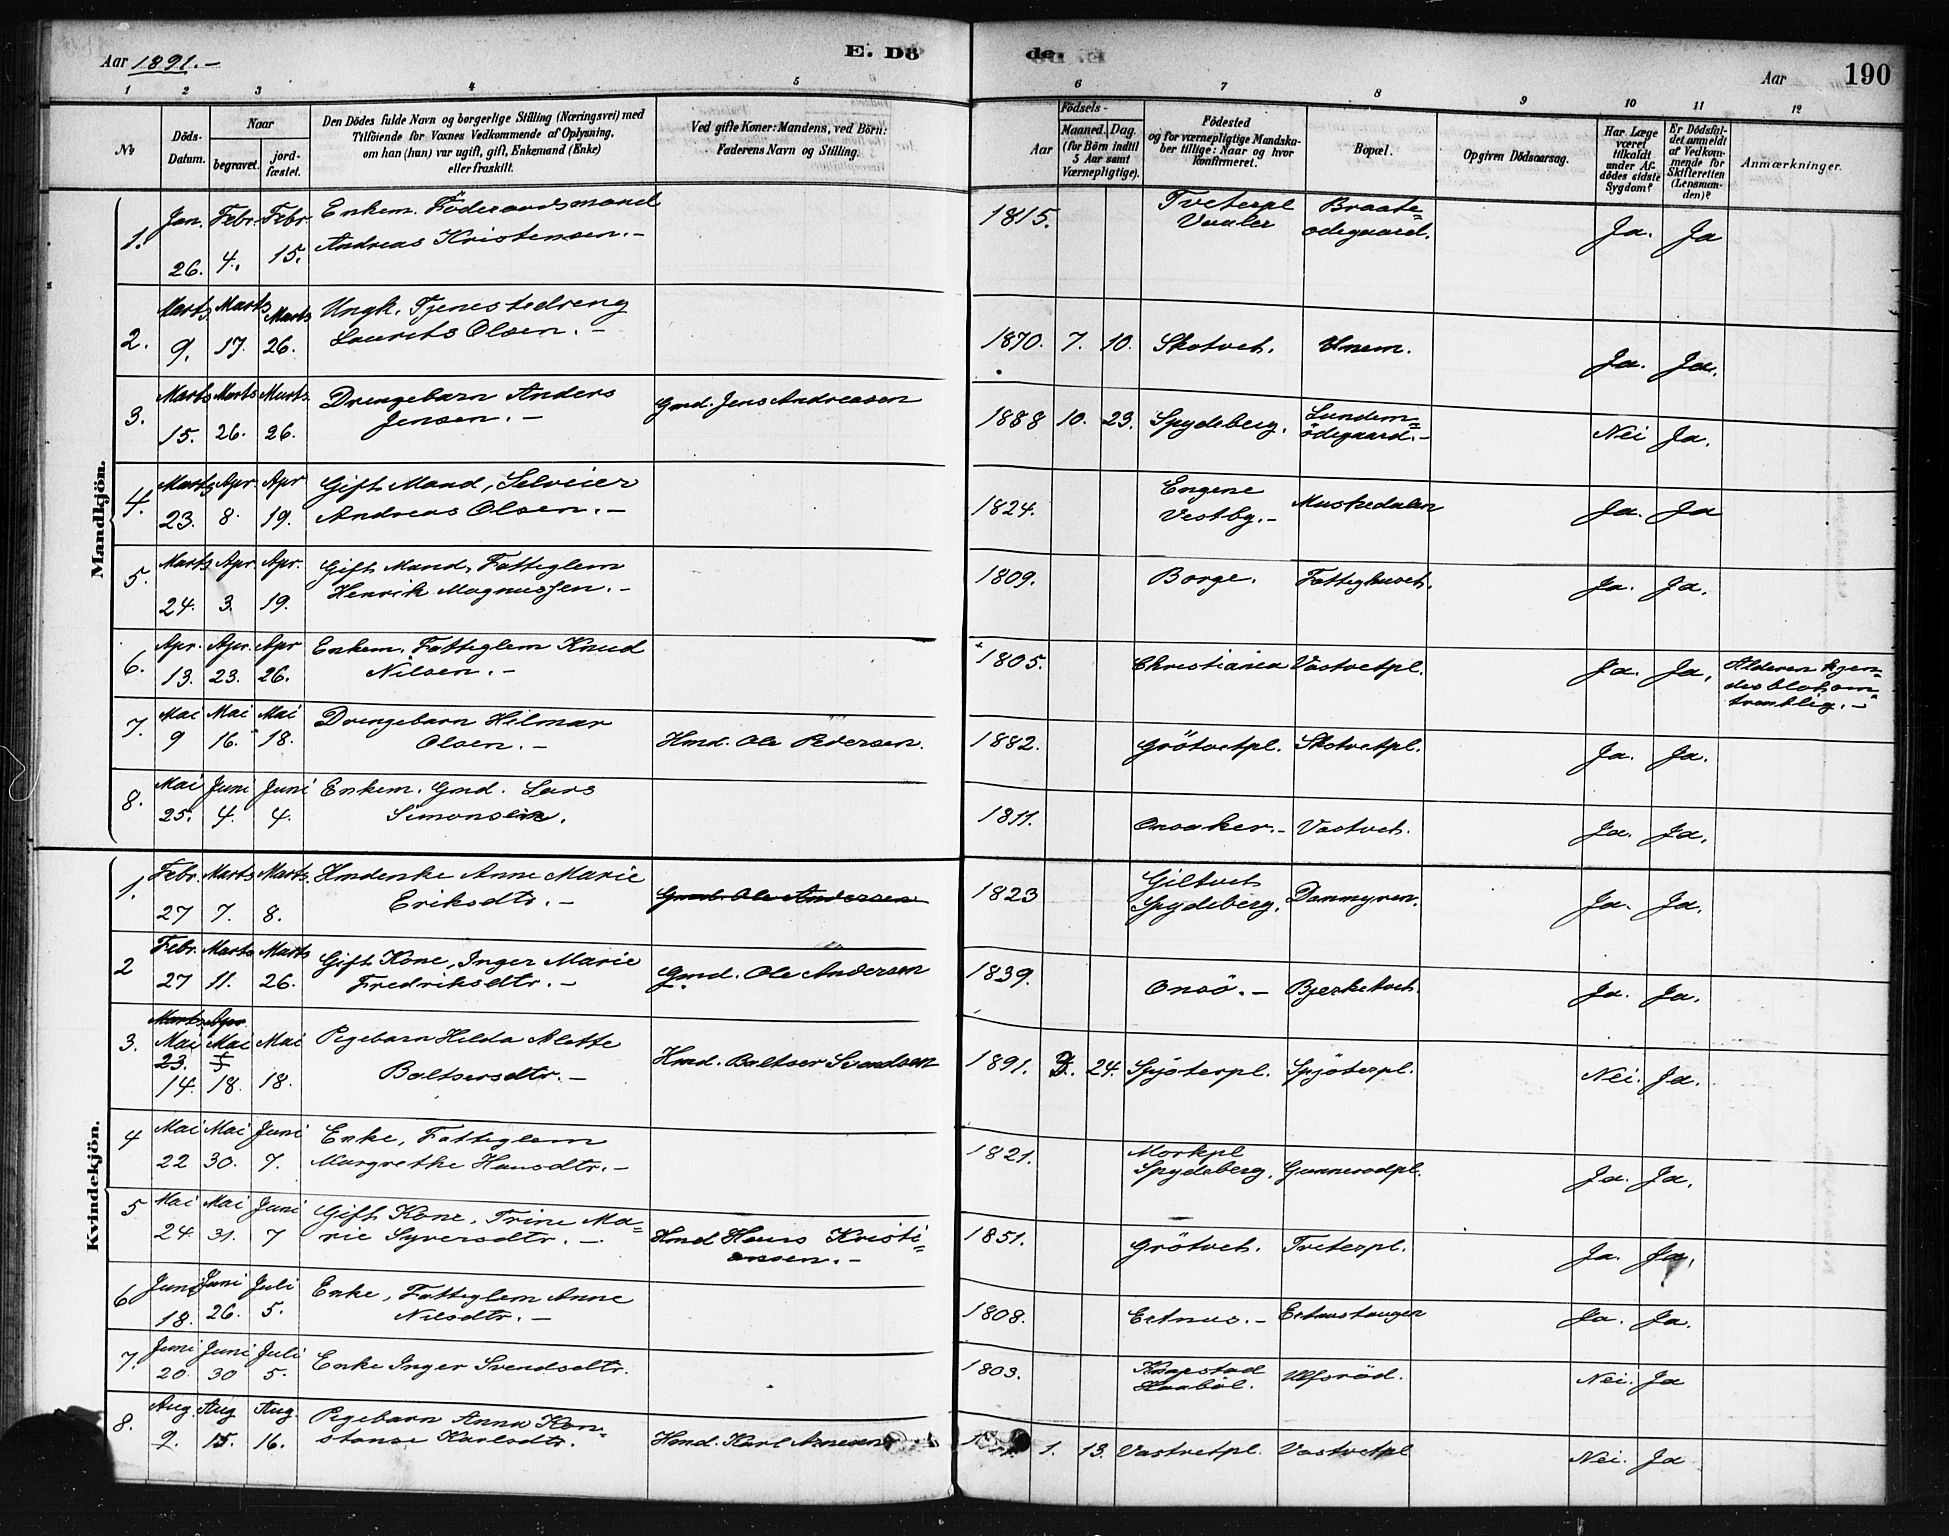 Aar 1891.-
E. Dö
de.
Aar
190
1 2 3 4 5 6 7 8 9 10 11 12
№
Döds-
Datum.
Naar
begravet.
jord-
fæstet.
Den Dödes fulde Navn og borgerlige Stilling (Næringsvei) med
Tilföiende for Voxnes Vedkommende af Oplysning,
om han (hun) var ugift, gift, Enkemand (Enke)
eller fraskilt.
Ved gifte Koner: Mandens, ved Börn:
Faderens Navn og Stilling.
Födsels-
Aar
Maaned. Dag.
(for Börn indtil
5 Aar samt
Værnepligtige).
Födested
og for værnepligtige Mandska-
ber tillige: Naar og hvor
Konfirmeret.
Bopæl.
Opgiven Dödsaarsag.
Har Læge
været
tilkaldt
under Af-
dödes sidste
Sygdom?
Er Dödsfal-
det anmeldt
af Vedkom-
mende for
Skifteretten
(Lensman-
den)?
Anmærkninger.
Mandkjön.
1. Jan. Febr. Febr. Enkem. Föderaadsmand 1815. Tveterpl Braate=
26. 4. 15. Andreas Kristensen.- Vaaler ödegaard. Ja. Ja
2. Marts Marts Marts Ungk. Tjenestedreng
9. 17. 26. Laurits Olsen.- 1870. 7. 10. Skotvet. Unem. Ja. Ja.
3. Marts Marts Marts Drengebarn Anders Gmd. Jens Andreasen 1888 10. 23. Spydeberg. Lundem=
15. 26. 26. Jensen.- ödegaard.- Nei Ja.
4. Marts Apr. Apr Gift Mand, Selveier 1824. Engene Muskedalen
23. 8. 19. Andreas Olsen.- Vestby.- Ja. Ja
5. Marts Apr. Apr. Gift Mand, Fattiglem 1809. Borge. Fattighuset.
24. 3. 19. Henrik Magnussen.- Ja. Ja.
6. Apr. Apr. Apr Enkem. Fattiglem Knud 1805. Christiania Vastvetpl. Ja. Ja. Alderen kjen=
13. 23. 26. Nilsen.- des blot om=
trentlig.-
7. Mai Mai Mai Drengebarn Hilmar
9 16. 18. Olsen.- Hmd. Ole Pedersen. 1882. Grötvetpl. Skotvetpl. Ja. Ja.
8. Mai Juni Juni Enkem. Gmd. Lars
25. 4. 4. Simonsen. 1811. Onsaker.- Vastvet. Ja. Ja.
Kvindekjön.
1. Febr. Marts Marts. Hmdenke Anne Marie 1823 Giltvet Dammyren.
27 7. 8. Eriksdtr.- Gmd. Ole Andersen Spydeberg. Ja. Ja.
2 Febr. Marts Marts Gift Kone, Inger Marie 1839.
27 11. 26. Fredriksdtr.- Gmd. Ole Andersen Onsö.- Bjerketvet. Ja. Ja.
3. Marts Apr
Mai Mai Mai Pigebarn Hilda Alette
23. Hmd. Baltser Svendsen 1891. 24. Spjöterpl. Spjöterpl. Nei. Ja.
14. 18. 18. Baltsersdtr.-
4 Mai Mai Juni Enke, Fattiglem 1821. Morkpl
22 30. 7. Margrethe Hansdtr.- Spydeberg. Gunnerödpl. Ja. Ja.
5 Mai Mai Juni Gift Kone, Trine Ma=
24 31. 7 rie Syversdtr.- Hmd Hans Kristi= 1851. Grötvet. Tveterpl. Ja. Ja.
ansen.-
6 Juni Juni Juli Enke, Fattiglem Anne 1808. Eetnus.- Eetnustangen Ja. Ja.
18. 26. 5. Nilsdtr.-
7. Juni Juni Juli Enke Inger Svendsdtr. 1803. Knapstad Ulfsröd. Nei. Ja
20. 30 5. Haabøl.
8. Aug. Aug Aug. Pigebarn Anna Kon=
9. 15. 16. stanse Karlsdtr. Hmd. Karl 1. 13. Vastvetpl. Vastvetpl Nei. Ja